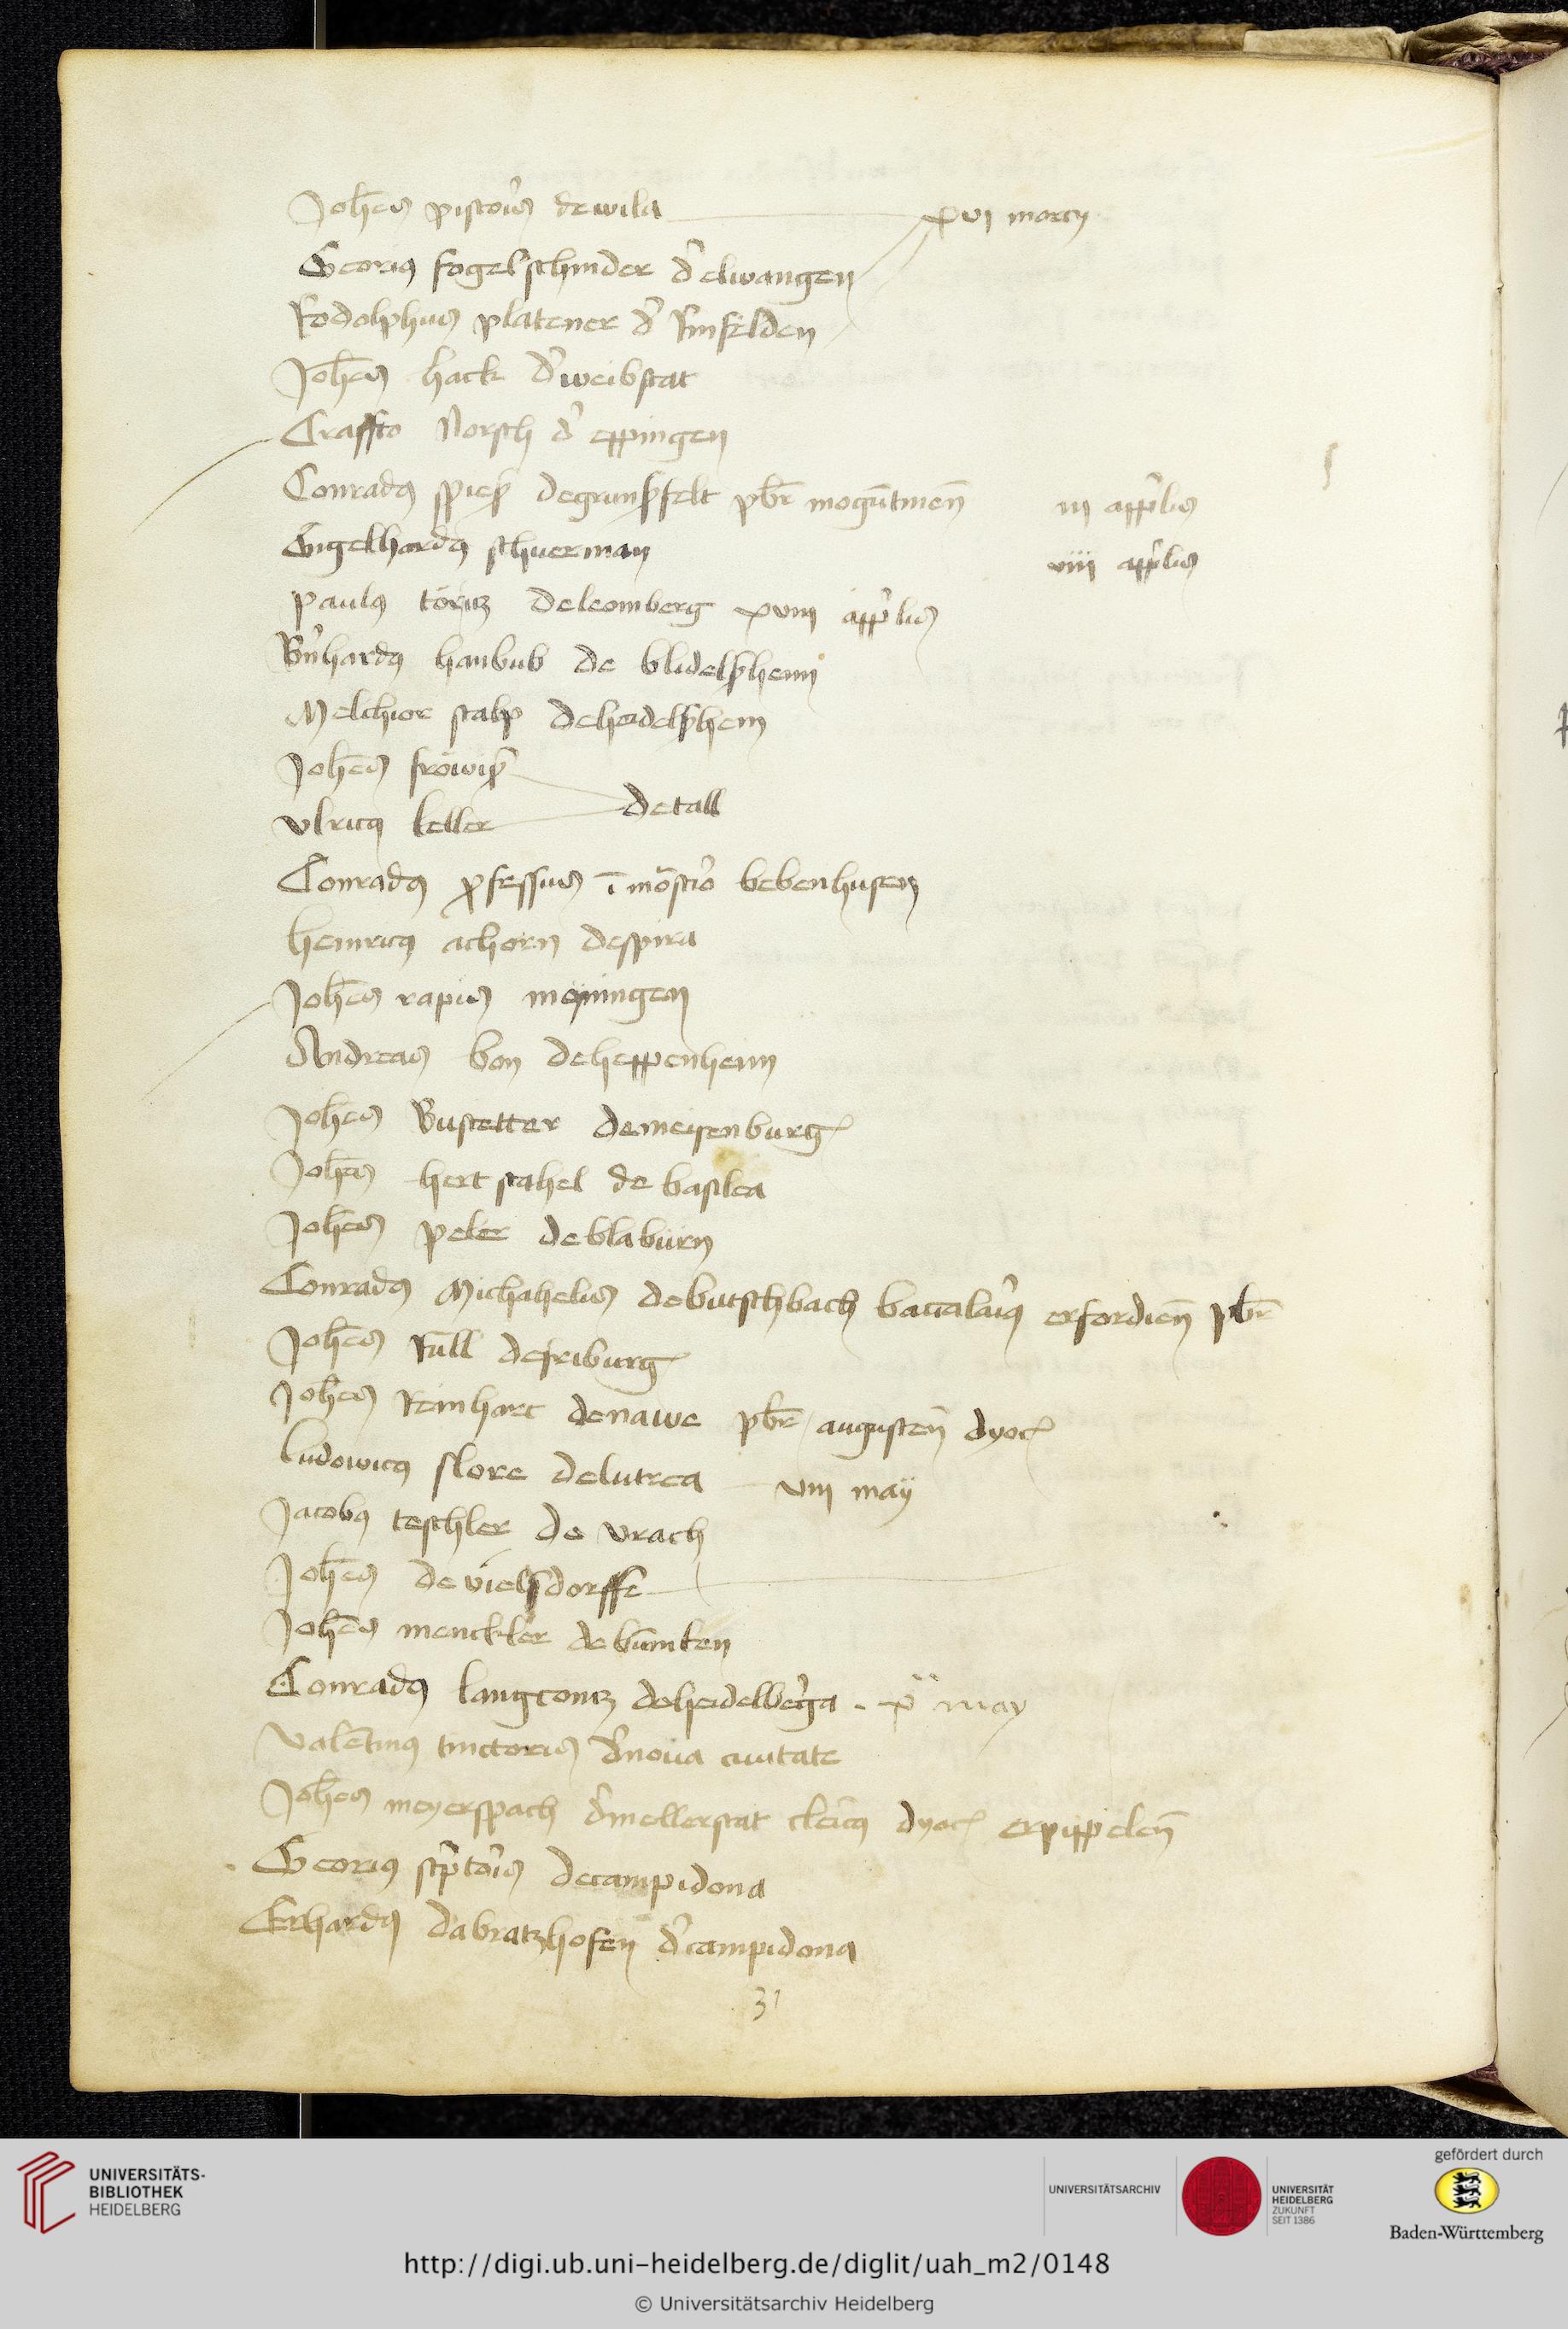 Joh̄es pistor̉is de wila xvi marcÿ
Georiꝯ fogelschinder d̉ elwangen
Rodolphus platener d̉ Rinfelden
Joh̄es hack d̉ weibstat
Craffto Norsch d̉ eppingen
Conradꝯ spieß de grunßfelt pbr̄ mogūtinen̄ iij app̉lis
Engelhardꝯ schuerman viii app̉lis
paulꝯ töritz de leomberg xviij app̉lis
Bn̉hardꝯ haubub de blidelßheim
Melchior stalp de heidelßhem
Joh̄es fröwiß
vlricꝯ keller de tall
Conradꝯ ꝓfessus ī mōst̉io bebenhusen
heinricꝯ achorn de spira
Joh̄es rapis möningen
Andreas bon de heppenheim
Joh̄es Bustetter de meisenburg
Joh̄es hertstahel de basilea
Joh̄es peler de blabürn
Conradꝯ Michahelis de butschbach baccalar̉iꝯ erfordien̄ pbr̄
Joh̄es Rüll de friburg
Joh̄es Reinhart de nawe pbr̄ augusten̄ dyoc̄
ludowicꝯ flore de lutrea viij maÿ
Jacobꝯ teschler de vrach
Joh̄es de vielsdorffe
Joh̄es menckler de būinken
Conradꝯ langcontz de heidelber̉ga xᵃ may
valētinꝯ tinctoris d̉ noua ciuitate
Joh̄es meyerspach d̉ mellerstat cleric̉ꝯ dyoc̄ erpippolen̄
Georiꝯ sc̉ptor̉is de campidona
Erhardꝯ da bratzhofen d̉ campidona
31
UNIVERSITÄTS-
BIBLIOTHEK
HEIDELBERG
UNIVERSITÄTSARCHIV
UNIVERSITÄT
HEIDELBERG
ZUKUNFT
SEIT 1386
gefördert durch
Baden-Württemberg
http://digi.ub.uni-heidelberg.de/diglit/uah_m2/0148
© Universitätsarchiv Heidelberg